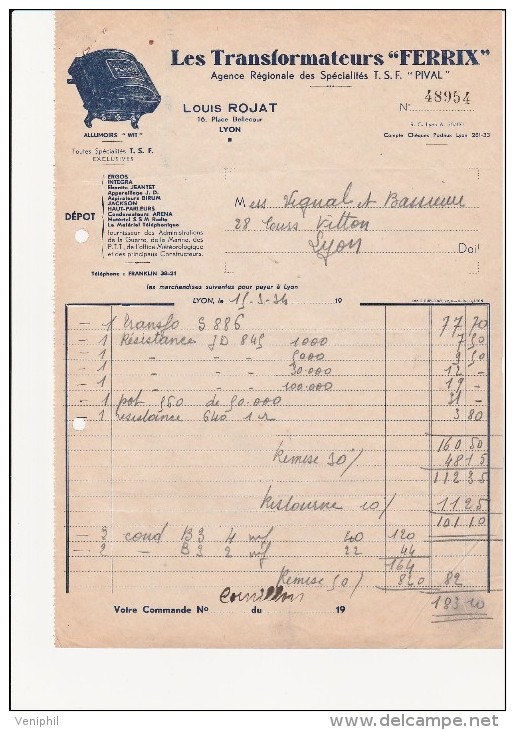 Les Transformateurs "FERRIX"
Agence Régionale des Spécialités T. S. F. "PIVAL"
LOUIS ROJAT
16, Place Bellecour
LYON
N° 48954
R. C. Lyon A.
Compte Chèques Postaux Lyon 281-33
ALLUMOIRS "WIT"
Toutes Spécialités T. S. F.
EXCLUSIVES
DÉPOT
ERGOS
INTEGRA
Ebonite JEANTET
Appareillage J. D.
Aspirateurs BIRUM
JACKSON
HAUT-PARLEURS
Condensateurs ARENA
Matériel S S M Radio
Le Matériel Téléphonique
Fournisseur des Administrations
de la Guerre, de la Marine, des
P.T.T., de l'office Météorologique
et des principaux Constructeurs.
Téléphone : FRANKLIN 38-21
Mess Vignal et
28 Cours Vitton
Lyon
Doit
les marchandises suivantes pour payer à Lyon
LYON, le 15-3-34 19
1 transfo S 886 77 70
1 Résistance JD 845 1000 7 50
1 " " 5000 9 50
1 " " 30.000 12 -
1 " " 100.000 19 -
1 pot 950 de 50.000 31 -
1 resistance 640 1 3 80
160 50
Remise 30% 48 15
112 35
Ristourne 10% 11 25
101 10
3 cond B3 4 mf 40 120
2 — B2 2 mf 22 44
164
Remise 50% 820 82
183 10
Votre Commande N° du 19
Veniphil
http://www.delcampe.net